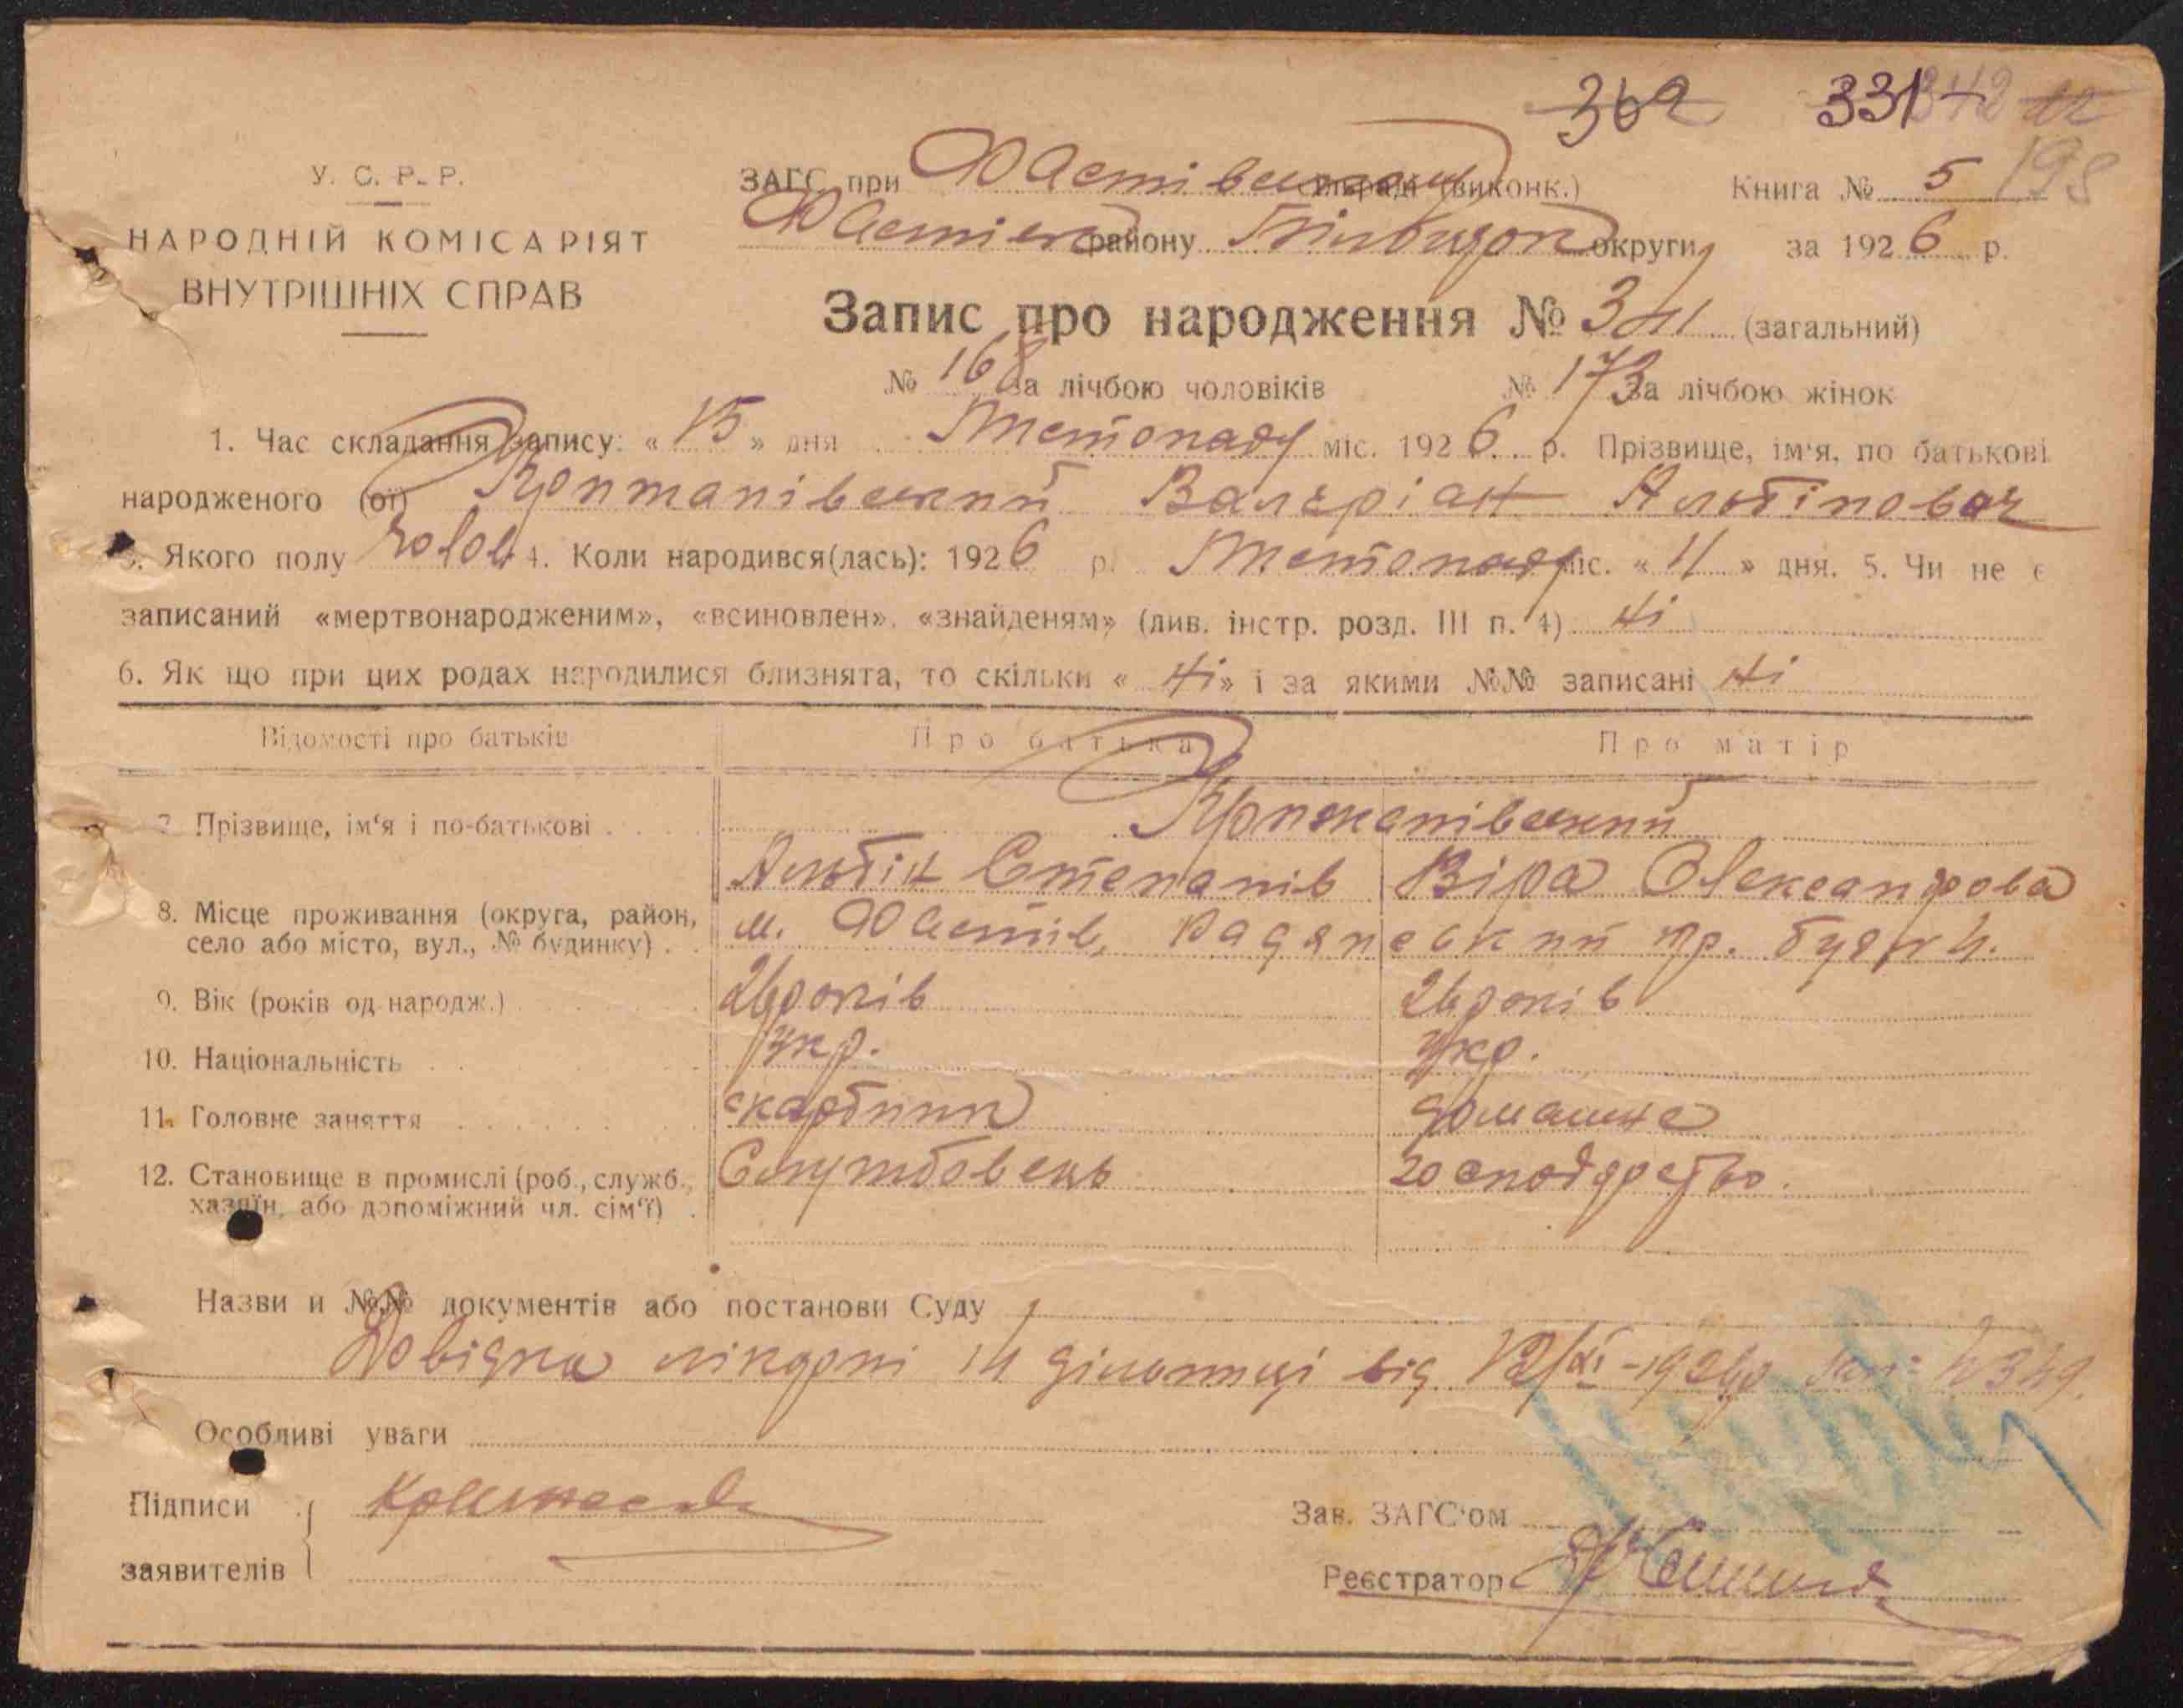 362 331 342 22
У. С. Р. Р. ЗАГС при Фастівському райвиконк. (виконк.) Книга № 5 198
НАРОДНІЙ КОМІСАРІЯТ Фастівськ району округи за 1926 р.
ВНУТРІШНІХ СПРАВ
Запис про народження № 341 (загальний)
№ 168 за лічбою чоловіків № 173 за лічбою жінок
1. Час складання запису: « 15 » дня Листопаду міс. 1926 р. Прізвище, ім'я, по батькові
народженого (ої) Валєріан Альбінович
3. Якого полу чолов 4. Коли народився(лась): 1926 р. Листопаду міс. « 11 » дня. 5. Чи не є
записаний «мертвонародженим», «всиновлен», «знайденям» (див. інстр. розд. III п. 4) Ні
6. Як що при цих родах народилися близнята, то скільки « Ні » і за якими №№ записані Ні
Відомості про батьків Про батька Про матір
7. Прізвище, ім'я і по-батькові
Альбін Степанів Віра Олександрова
8. Місце проживання (округа, район, село або місто, вул., № будинку) м. Фастів, Радянський пр. буд № 4.
9. Вік (років од народж.) 26 років 26 років
10. Національність Укр. Укр.
11. Головне заняття скарбник домашнє
12. Становище в промислі (роб., служб., хазяїн, або допоміжний чл. сім'ї) Службовець господарство.
Назви и №№ документів або постанови Суду
Довідка лікарні 14 дільниці від 12/XI-1926р № 349.
Особливі уваги
Підписи
заявителів
Зав. ЗАГС'ом
Реєстратор